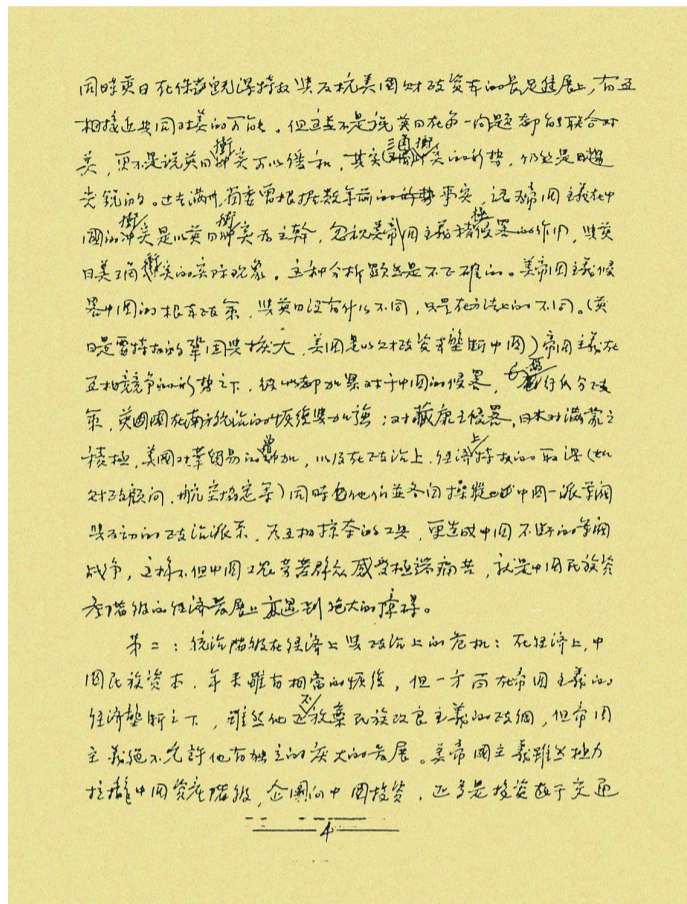 同時英日在保護既得特权與反抗美國財政資本的長足進展上，有互
相接近共同对美的可能。但这並不是說英日在每一問題都能聯合对
美，更不是說英日衝突可以緩和，其实這衝突的形势，仍然是日趨
尖銳的。过去满州省委曾根据数年前的事实，認为帝国主義在中
國的衝突是以英日衝突为主幹，忽視美帝國主義積極侵畧的作用，與英
日美三角衝突的实际现象。这种分析顕然是不正確的。美帝国主義侵
畧中国的根本政策，與英日没有什么不同，只是在方法上的不同。（英
日是要特权的鞏固與擴大，美国是以財政資本壟断中国）帝国主義在
互相競争的形势之下，彼此都加緊对于中国的侵畧，瓜分政
策，英國在南方統治的恢復與加強；对藏康之侵畧，日本对满蒙之
積極，美國对華貿易的增加，以及在政治上、经濟上特权的取得（如
財政顧问，航空協定等）同時他们並各自操縱中國一派軍閥
與反动的政治派系，为互相掠夺的工具，更造成中国不断的軍閥
战争，这样不但中国工農劳苦群众感受極端痛苦，就是中国民族資
產階級的经濟發展上亦遇到绝大的障碍。
第二：統治階級在经濟上與政治上的危机：在经濟上，中
國民族資本，年来雖有相當的恢復，但一方面在帝国主義的
经濟壟断之下，雖然他不放棄民族改良主義的政綱，但帝国
主義絕不允許他有独立的廣大的發展。美帝國主義雖然極力
拉攏中国資產階級，企圖向中國投資，但多是投資于交通
4